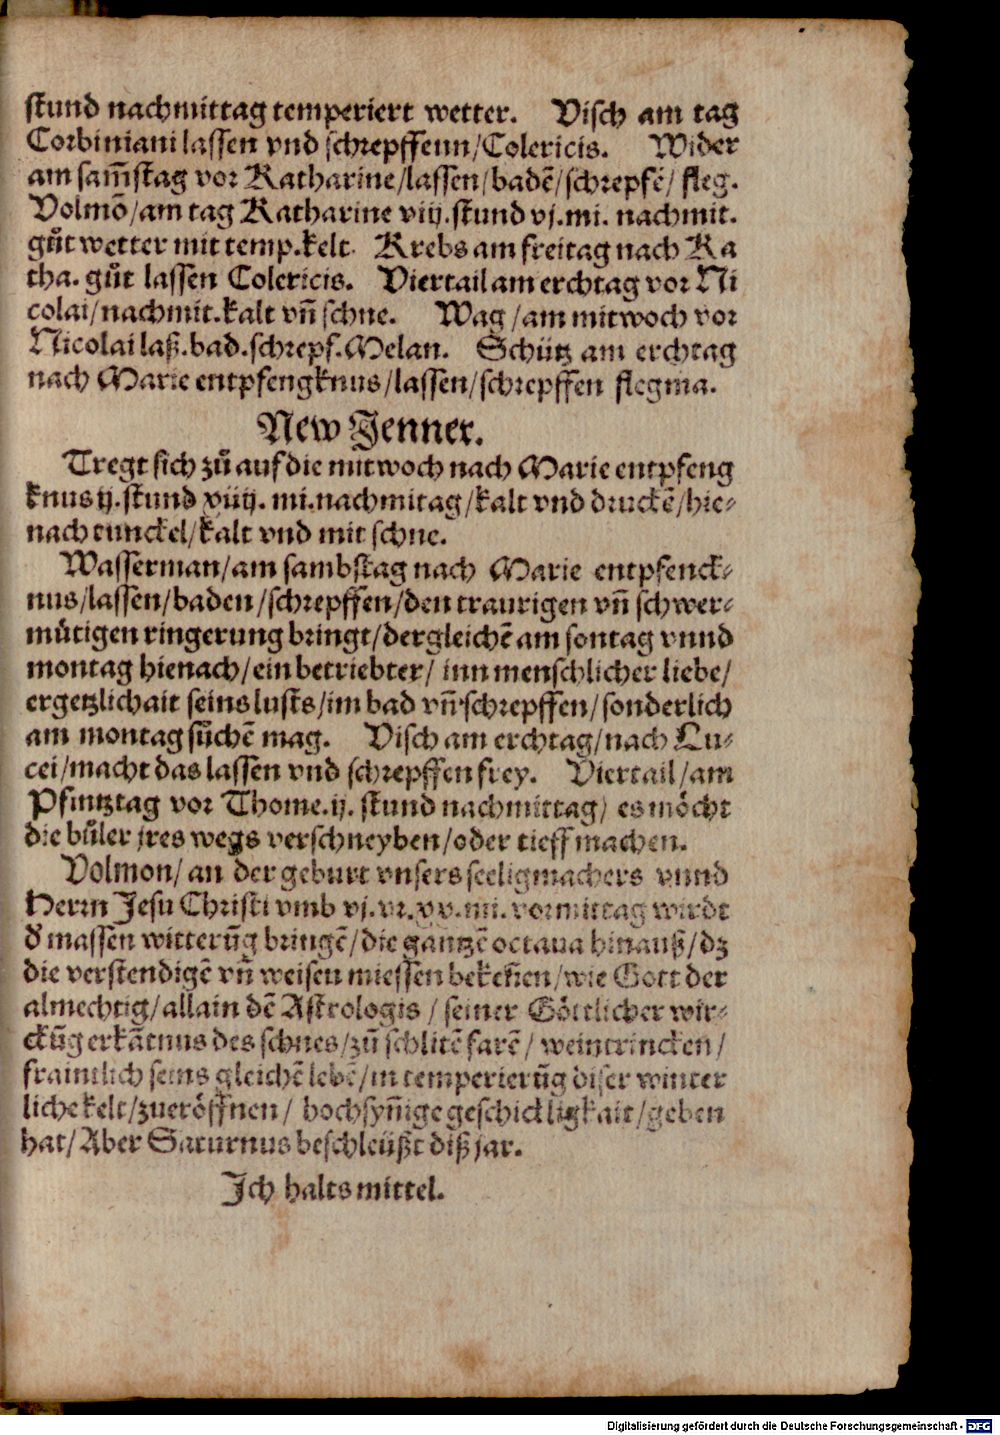 stund nachmittag temperiert wetter. Visch am tag
Corbiniani lassen vnd schrepffenn/Colericis. Wider
am sam̃stag vor Katharine/lassen/badẽ/schrepfẽ/ fleg.
Volmõ/am tag Katharine viij.stund vj.mi. nachmit.
gůt wetter mit temp.kelt. Krebs am freitag nach Ka
tha. gůt lassen Colericis. Viertail am erchtag vor Ni
colai/nachmit.kalt vñ schne. Wag/am mitwoch vor
Nicolai laß.bad.schrepf.Melan. Schütz am erchtag
nach Marie entpfengknus/lassen/schrepffen flegma.
New Jenner.
Tregt sich zů auf die mitwoch nach Marie entpfeng
knus ij.stund xiiij. mi.nachmitag/kalt vnd druckẽ/hie-
nach tunckel/kalt vnd mit schne.
Wasserman/am sambstag nach Marie entpfenck-
nus/lassen/baden/schrepffen/den traurigen vñ schwer-
mütigen ringerung bringt/dergleichẽ am sontag vnnd
montag hienach/ein betriebter/ inn menschlicher liebe/
ergetzlichait seins lusts/im bad vñ schrepffen/sonderlich
am montag sůchẽ mag. Visch am erchtag/nach Lu-
cei/macht das lassen vnd schrepffen frey. Viertail/am
Pfintztag vor Thome.ij. stund nachmittag/ es möcht
die bůler jres wegs verschneyben/oder tieff machen.
Volmon/ an der geburt vnsers seeligmachers vnnd
Herrn Jesu Christi vmb vj.vr.xv.mi.vormittag wirdt
d' massen witterũg bringẽ/die gantzẽ octaua hinauß/dz
die verstendigẽ vñ weisen miessen bekeñen/wie Gott der
almechtig/allain dẽ Astrologis/ seiner Göttlicher wir-
ckũg erkãtnus des schnes/zů schlitẽ farẽ/ weintrincken/
fraintlich seins gleichẽ lebẽ/in temperierũg diser winter
liche kelt/zueröffnen/ hochsyñige geschickligkait/geben
hat/Aber Saturnus beschleüßt diß jar.
Ich halts mittel.
Digitalisierung gefördert durch die Deutsche Forschungsgemeinschaft - DFG